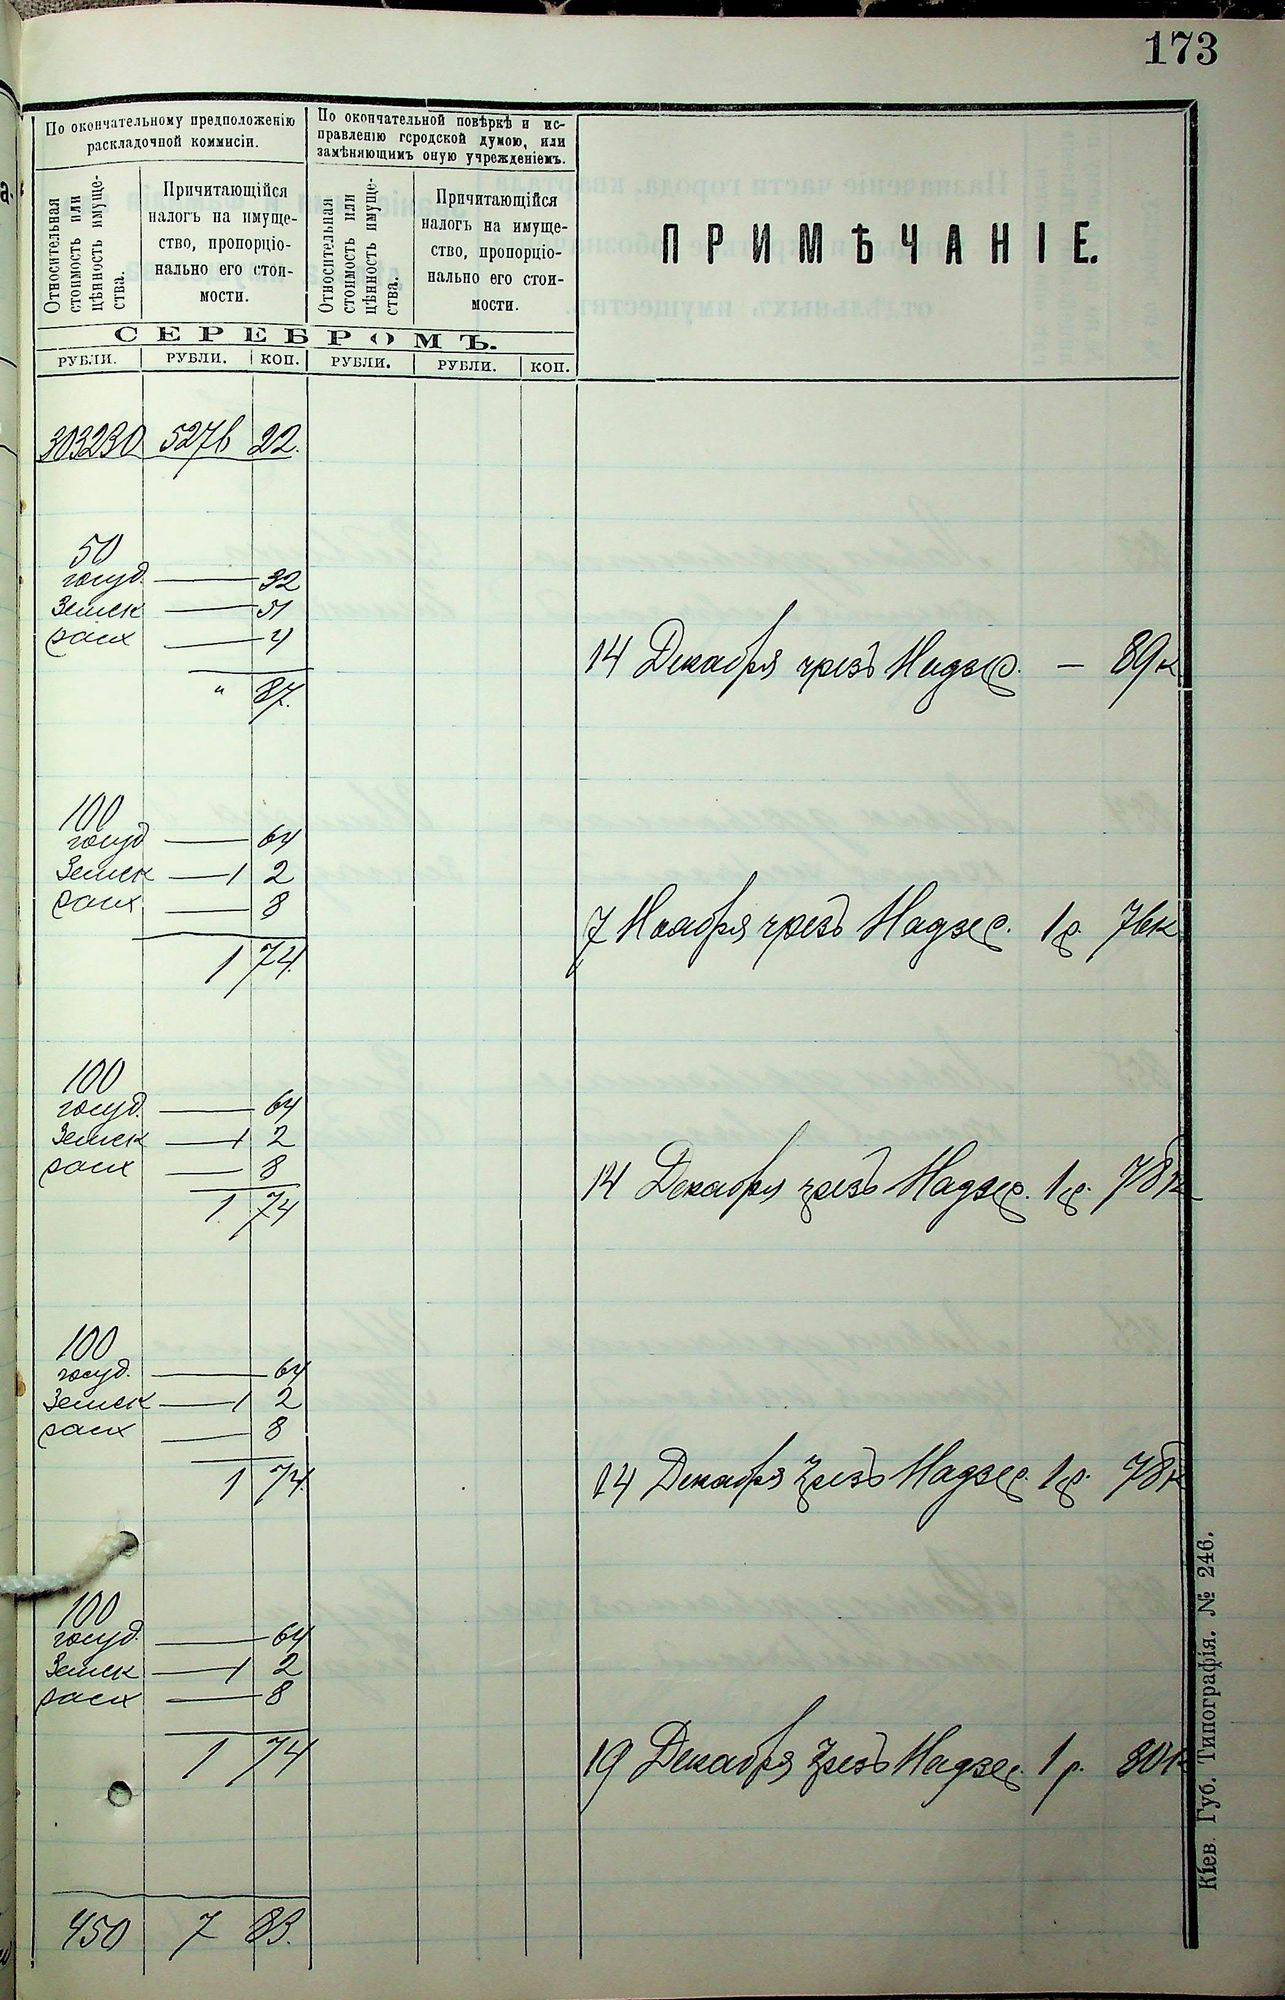 173
По окончательному предположенію
раскладочной коммисіи.
По окончательной повѣркѣ и ис-
правленію городской думою, или
замѣняющимъ оную учрежденіемъ.
Относительная
стоимость или
цѣнность имуще-
ства.
Причитающійся
налогъ на имуще-
ство, пропорціо-
нально его стои-
мости.
Относительная
стоимость или
цѣнность имуще-
ства.
Причитающійся
налогъ на имуще-
ство, пропорціо-
нально его стои-
мости.
ПРИМѢЧАНІЕ.
СЕРЕБРОМЪ.
РУБЛИ. РУБЛИ. КОП. РУБЛИ. РУБЛИ. КОП.
303230 5276 22.
50
госуд. — 32
Земск — 51
расх — 4
" 87.
14 Декабря чрезъ Надзер. — 89 к
100
госуд — 64
Земск — 1 2
расх — 8
1 74.
7 Ноября чрезъ Надзер. 1 р. 76 к
100
госуд. — 64
Земск — 1 2
расх — 8
1 74
14 Декабря чрезъ Надзер. 1 р. 78 к
100
госуд. — 64
Земск — 1 2
расх — 8
1 74
14 Декабря чрезъ Надзер. 1 р. 78 к
100
госуд. — 64
Земск — 1 2
расх — 8
1 74
19 Декабря чрезъ Надзер. 1 р. 80 к
450 7 83.
Кіев. Губ. Типографія. № 246.